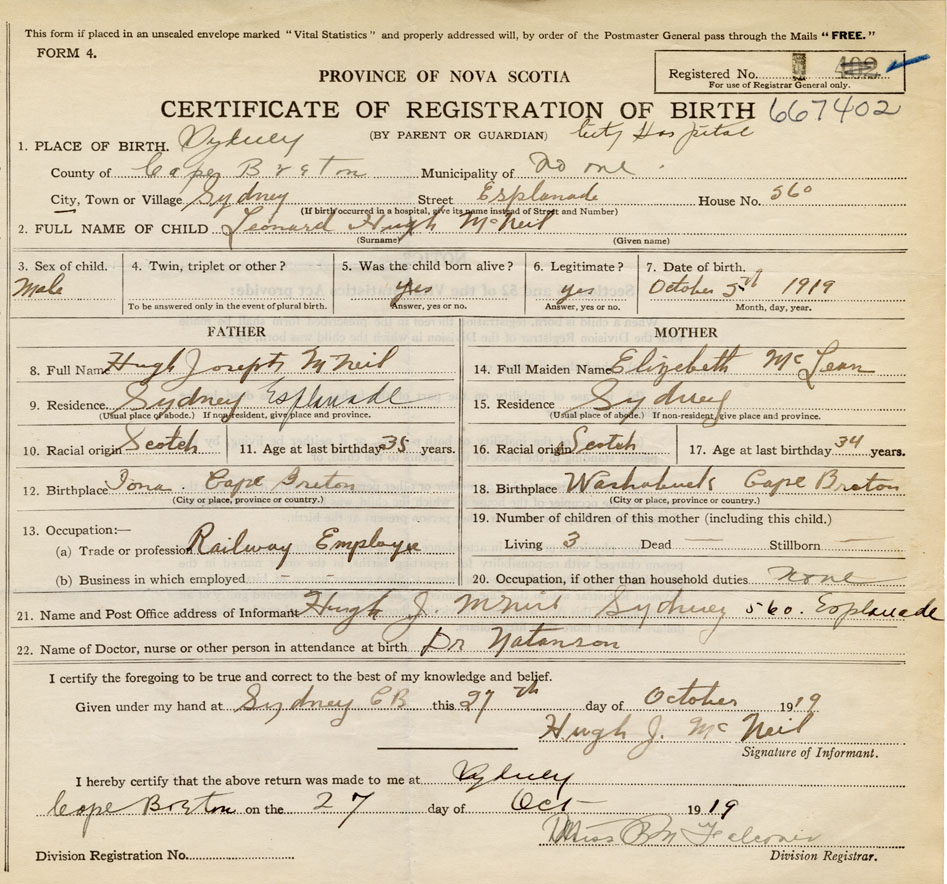 This form if placed in an unsealed envelope marked "Vital Statistics" and properly addressed will, by order of the Postmaster General pass through the Mails "FREE."
FORM 4.
Registered No. 402
For use of Registrar General only.
PROVINCE OF NOVA SCOTIA
CERTIFICATE OF REGISTRATION OF BIRTH 667402
(BY PARENT OR GUARDIAN) City Hospital
1. PLACE OF BIRTH. Sydney
County of Cape Breton Municipality of None
City, Town or Village Sydney Street Esplanade House No. 560
(If birth occurred in a hospital, give its name instead of Street and Number)
2. FULL NAME OF CHILD Leonard Hugh McNeil
(Surname) (Given name)
3. Sex of child. 4. Twin, triplet or other? 5. Was the child born alive? 6. Legitimate? 7. Date of birth.
Male yes yes October 1919
To be answered only in the event of plural birth. Answer, yes or no. Answer, yes or no. Month, day, year.
FATHER MOTHER
8. Full Name Hugh Joseph McNeil 14. Full Maiden Name Elizebeth McLean
9. Residence Sydney Esplanade 15. Residence Sydney
(Usual place of abode.) If non-resident, give place and province. (Usual place of abode.) If non-resident, give place and province.
10. Racial origin Scotch 11. Age at last birthday 35 years. 16. Racial origin Scotch 17. Age at last birthday 34 years.
12. Birthplace Iona Cape Breton 18. Birthplace Washabuck Cape Breton
(City or place, province or country.) (City or place, province or country.)
13. Occupation:— 19. Number of children of this mother (including this child.)
(a) Trade or profession Railway Employe Living 3 Dead — Stillborn —
(b) Business in which employed - - 20. Occupation, if other than household duties None
21. Name and Post Office address of Informant Hugh J. McNeil Sydney 560. Esplanade
22. Name of Doctor, nurse or other person in attendance at birth Dr Natanson
I certify the foregoing to be true and correct to the best of my knowledge and belief.
Given under my hand at Sydney CB this 27th day of October 1919
Hugh J. McNeil
Signature of Informant.
I hereby certify that the above return was made to me at Sydney
Cape Breton on the 27 day of Oct 1919
Miss Falconer
Division Registration No. Division Registrar.